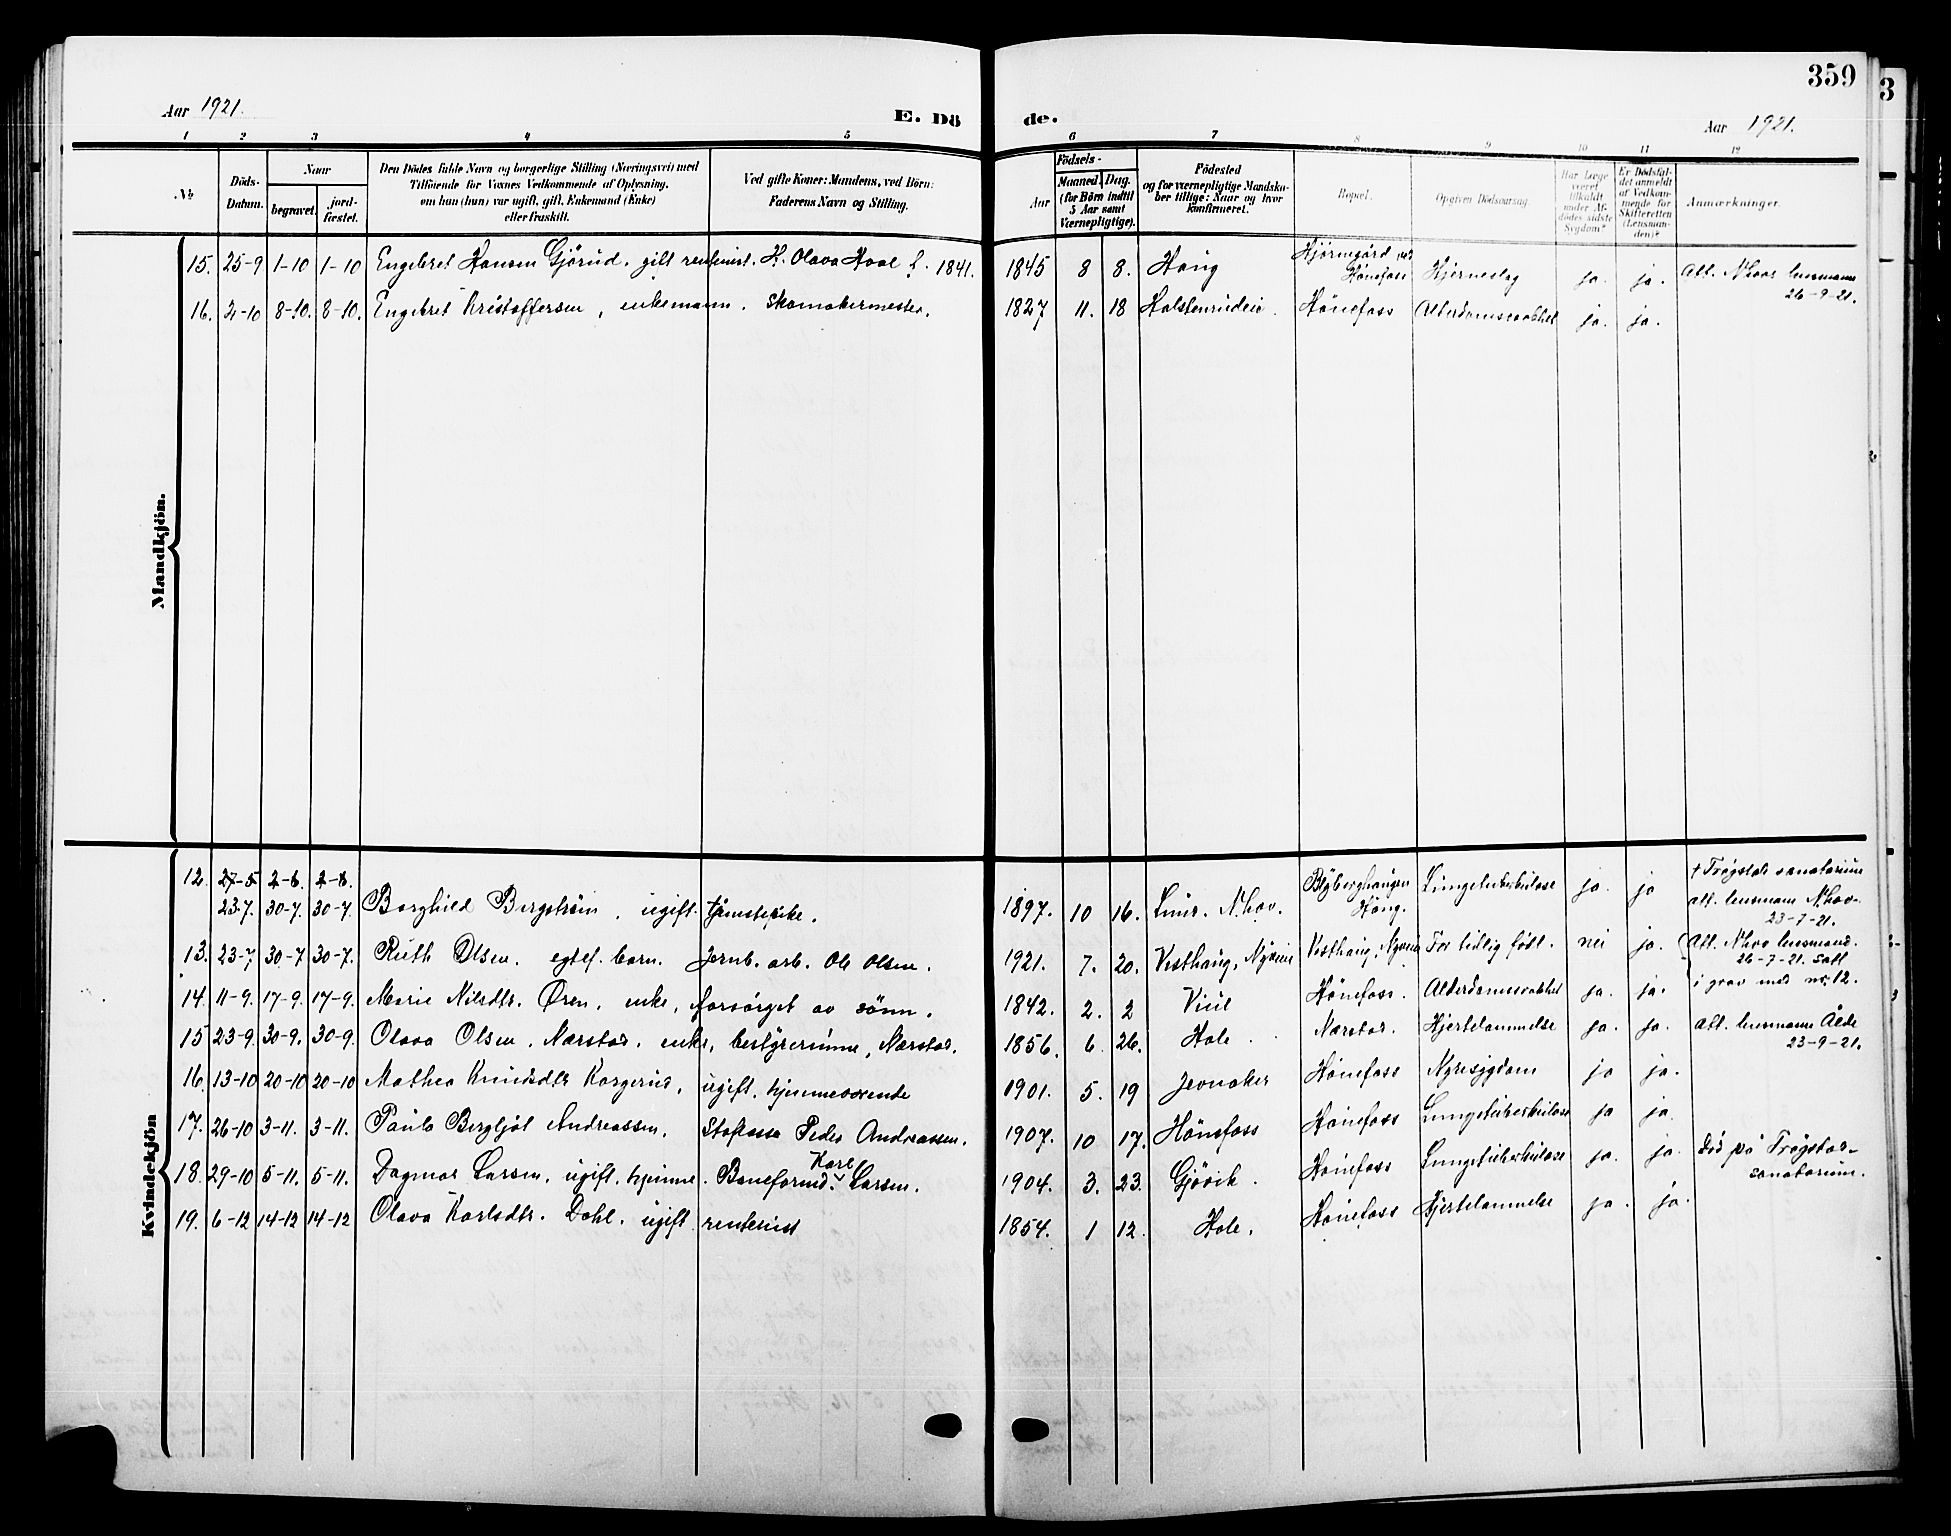 359
Aar 1921.
E. Dö de.
Aar 1921.
1 2 3 4 5 6 7 8 9 10 11 12
No.
Döds-Datum.
Naar
begravet.
jordfæstet.
Den Dödes fulde Navn og borgerlige Stilling (Næringsvei) med
Tilföiende for Voxnes Vedkommende af Oplysning,
om han (hun) var ugift, gift, Enkemand (Enke)
eller fraskilt.
Ved gifte Koner: Mandens, ved Börn:
Faderens Navn og Stilling.
Födsels-
Aar
Maaned. Dag.
(for Börn indtil
5 Aar samt
Værnepligtige).
Födested
og for værnepligtige Mandskaber
tillige: Naar og hvor
konfirmeret.
Bopæl.
Opgiven Dödsaarsag.
Har Læge
været
tilkaldt
under Afdödes
sidste
Sygdom?
Er Dödsfaldet
anmeldt
af Vedkommende
for
Skifteretten
(Lensmanden)?
Anmærkninger.
Mandkjön.
15. 25-9 1-10 1-10 Engebret Hansen Gjörud. gift rentenist. H. Olava Hval f. 1841. 1845 8 8. Haug Hönefoss Hjerneslag ja. ja. Att. N'hov lensmann
26-9-21.
16. 2-10 8-10. 8-10. Engebret Kristoffersen, enkemann. Skomakermester. 1827 11. 18 Hönefoss Alderdomssvakhet ja. ja.
Kvindekjön
12. 27-5 2-6. 2-6.
23-7. 30-7. 30-7. Borghild Bergström. ugift. tjenestepike. 1897. 10 16. N.hov. Blyberghaugen
Haug. Lungetuberkulose ja. ja † Trögstad sanatorium
att. lensmann N'hov.
23-7-21.
13. 23-7 30-7 30-7. Ruth Olsen. egtef. barn. Jernb. arb. Ole Olsen. 1921. 7. 20. Vesthaug, Nyveien Vesthaug, Nyveien For tidlig födt. nei ja. Att. N'hov lensmand.
26-7-21. satt
i grav med nr. 12.
14. 11-9. 17-9. 17-9. Marie Nilsdtr. Ören. enke, forsörget av sönn. 1842. 2. 2 Viul Hönefoss. Alderdomssvakhet ja. ja.
15 23-9. 30-9. 30-9. Olava Olsen. Nærstad. enke, bestyrerinne, Nærstad. 1856. 6 26. Hole Nærstad. Hjertelammelse ja. ja. att. lensmann Ådal
23-9-21.
16. 13-10 20-10 20-10 Mathea Knudsdtr. ugift. hjemmeværende 1901. 5. 19 Jevnaker Hönefoss Nyresygdom ja ja.
17. 26-10 3-11. 3-11. Paula Bergljot Andreassen. Peder Andreassen. 1907. 10 17. Hönefoss Hönefoss Lungetuberkulose ja ja.
18. 29-10 5-11. 5-11. Dagmar Larsen, ugift. hjemme. Baneformd. Karl Larsen. 1904. 3. 23. Gjövik. Hönefoss Lungetuberkulose ja. ja. död på Trögstad-
sanatorium.
19. 6-12 14-12 14-12 Olava Karlsdtr. Dahl. ugift rentenist 1854. 1 12. Hole. Hönefoss Hjertelammelse ja. ja.